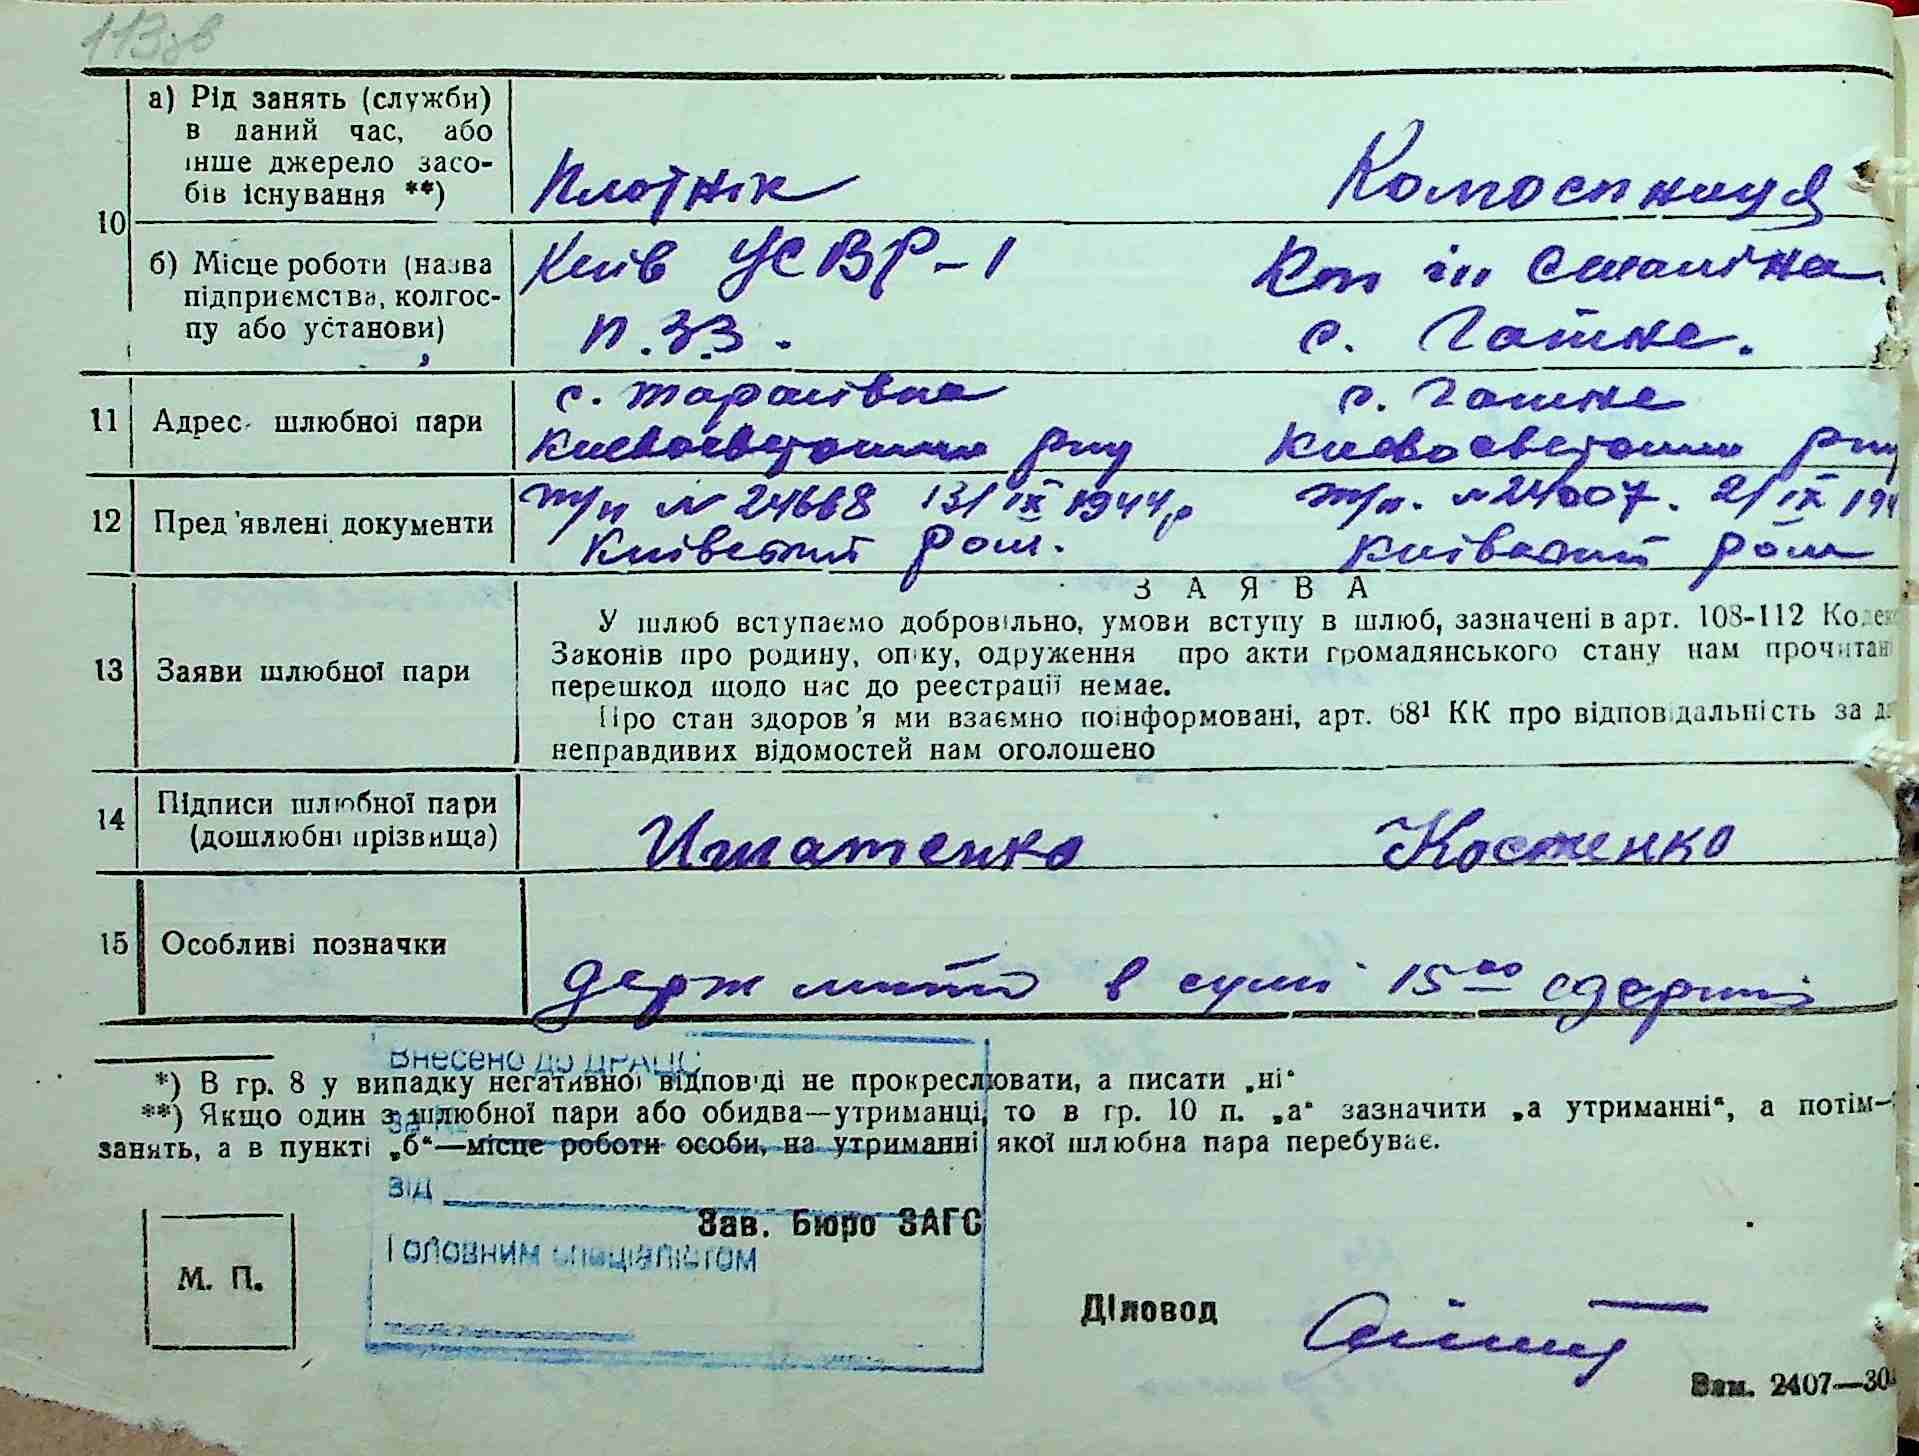 113зв
10
а) Рід занять (служби)
в даний час, або
інше джерело засо-
бів існування **)
Плотнік
Колгоспниця
б) Місце роботи (назва
підприємства, колгос-
пу або установи)
Київ УСВР-1
п.33.
Кол ім Сталіна
с. Гатне.
11
Адрес шлюбної пари
с. Тарасівка
с. Гатне
12
Пред'явлені документи
т/п № 24668 13/IX 1944 р
т/п. № 24007. 2/IX 194
Київський
Київський
13
Заяви шлюбної пари
ЗАЯВА
У шлюб вступаємо добровільно, умови вступу в шлюб, зазначені в арт. 108-112 Кодек
Законів про родину, опіку, одруження про акти громадянського стану нам прочитан
перешкод щодо нас до реєстрації немає.
Про стан здоров'я ми взаємно поінформовані, арт. 68¹ КК про відповідальність за д
неправдивих відомостей нам оголошено
14
Підписи шлюбної пари
(дошлюбні прізвища)
Игнатенко
Костенко
15
Особливі позначки
держ мито в сумі 15 00
*) В гр. 8 у випадку негативної відповіді не прокреслювати, а писати „ні“
**) Якщо один з шлюбної пари або обидва—утриманці, то в гр. 10 п. „а“ зазначити „а утриманні“, а потім—
занять, а в пункті „б“—місце роботи особи, на утриманні якої шлюбна пара перебуває.
Внесено до ДРАЦС
за №
від
Головним спеціалістом
М. П.
Зав. Бюро ЗАГС
Діловод
Зам. 2407—30